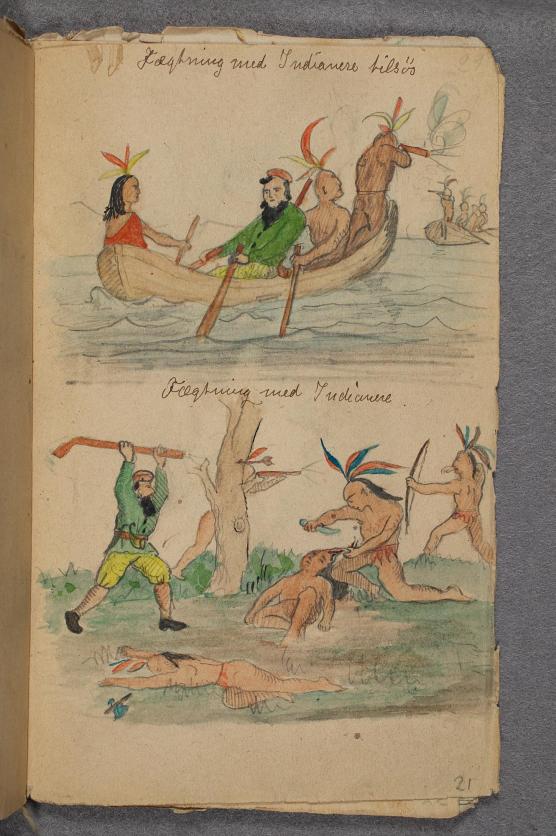 Fægtning med Indianere tilsøs
Fægtning med Indianere.
21